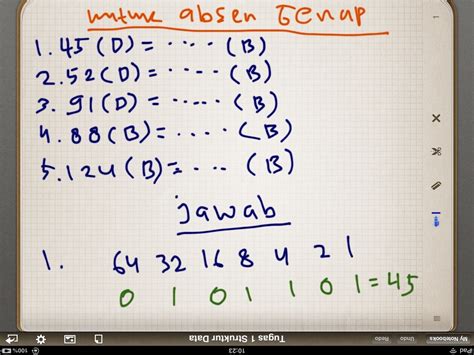 untuk absen GEnap
1. 45 (D) = ..... (B)
2. 52 (D) = ..... (B)
3. 91 (D) = ..... (B)
4. 88 (B) = ..... (B)
5. 124 (B) = .... (B)
jawab
1. 64 32 16 8 4 2 1
0 1 0 1 1 0 1 = 45
My Notebooks Undo Redo Tugas 1 Struktur Data
iPad 100%